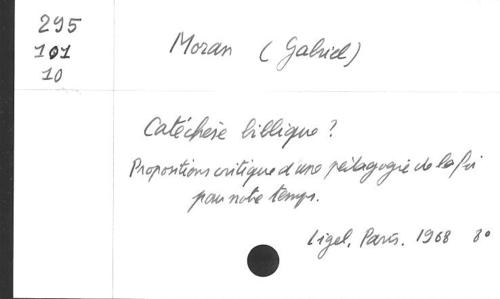 295
101
10
Moran (Gabriel)
Catéchèse biblique ?
Propositions critique d'une pédagogie de la foi
pour notre temps.
Ligel, Paris. 1968 8°